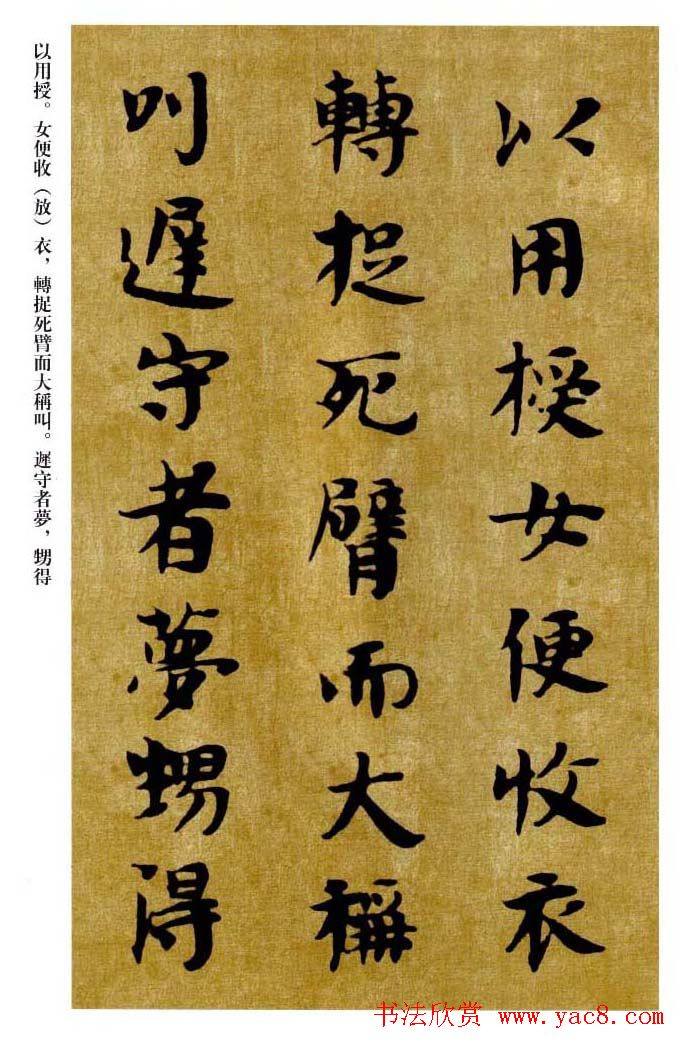 以用授女便收衣
轉捉死臂而大稱
叫遲守者夢甥得
以用授。女便收（放）衣，轉捉死臂而大稱叫。遲守者夢，甥得
书法欣赏 www.yac8.com